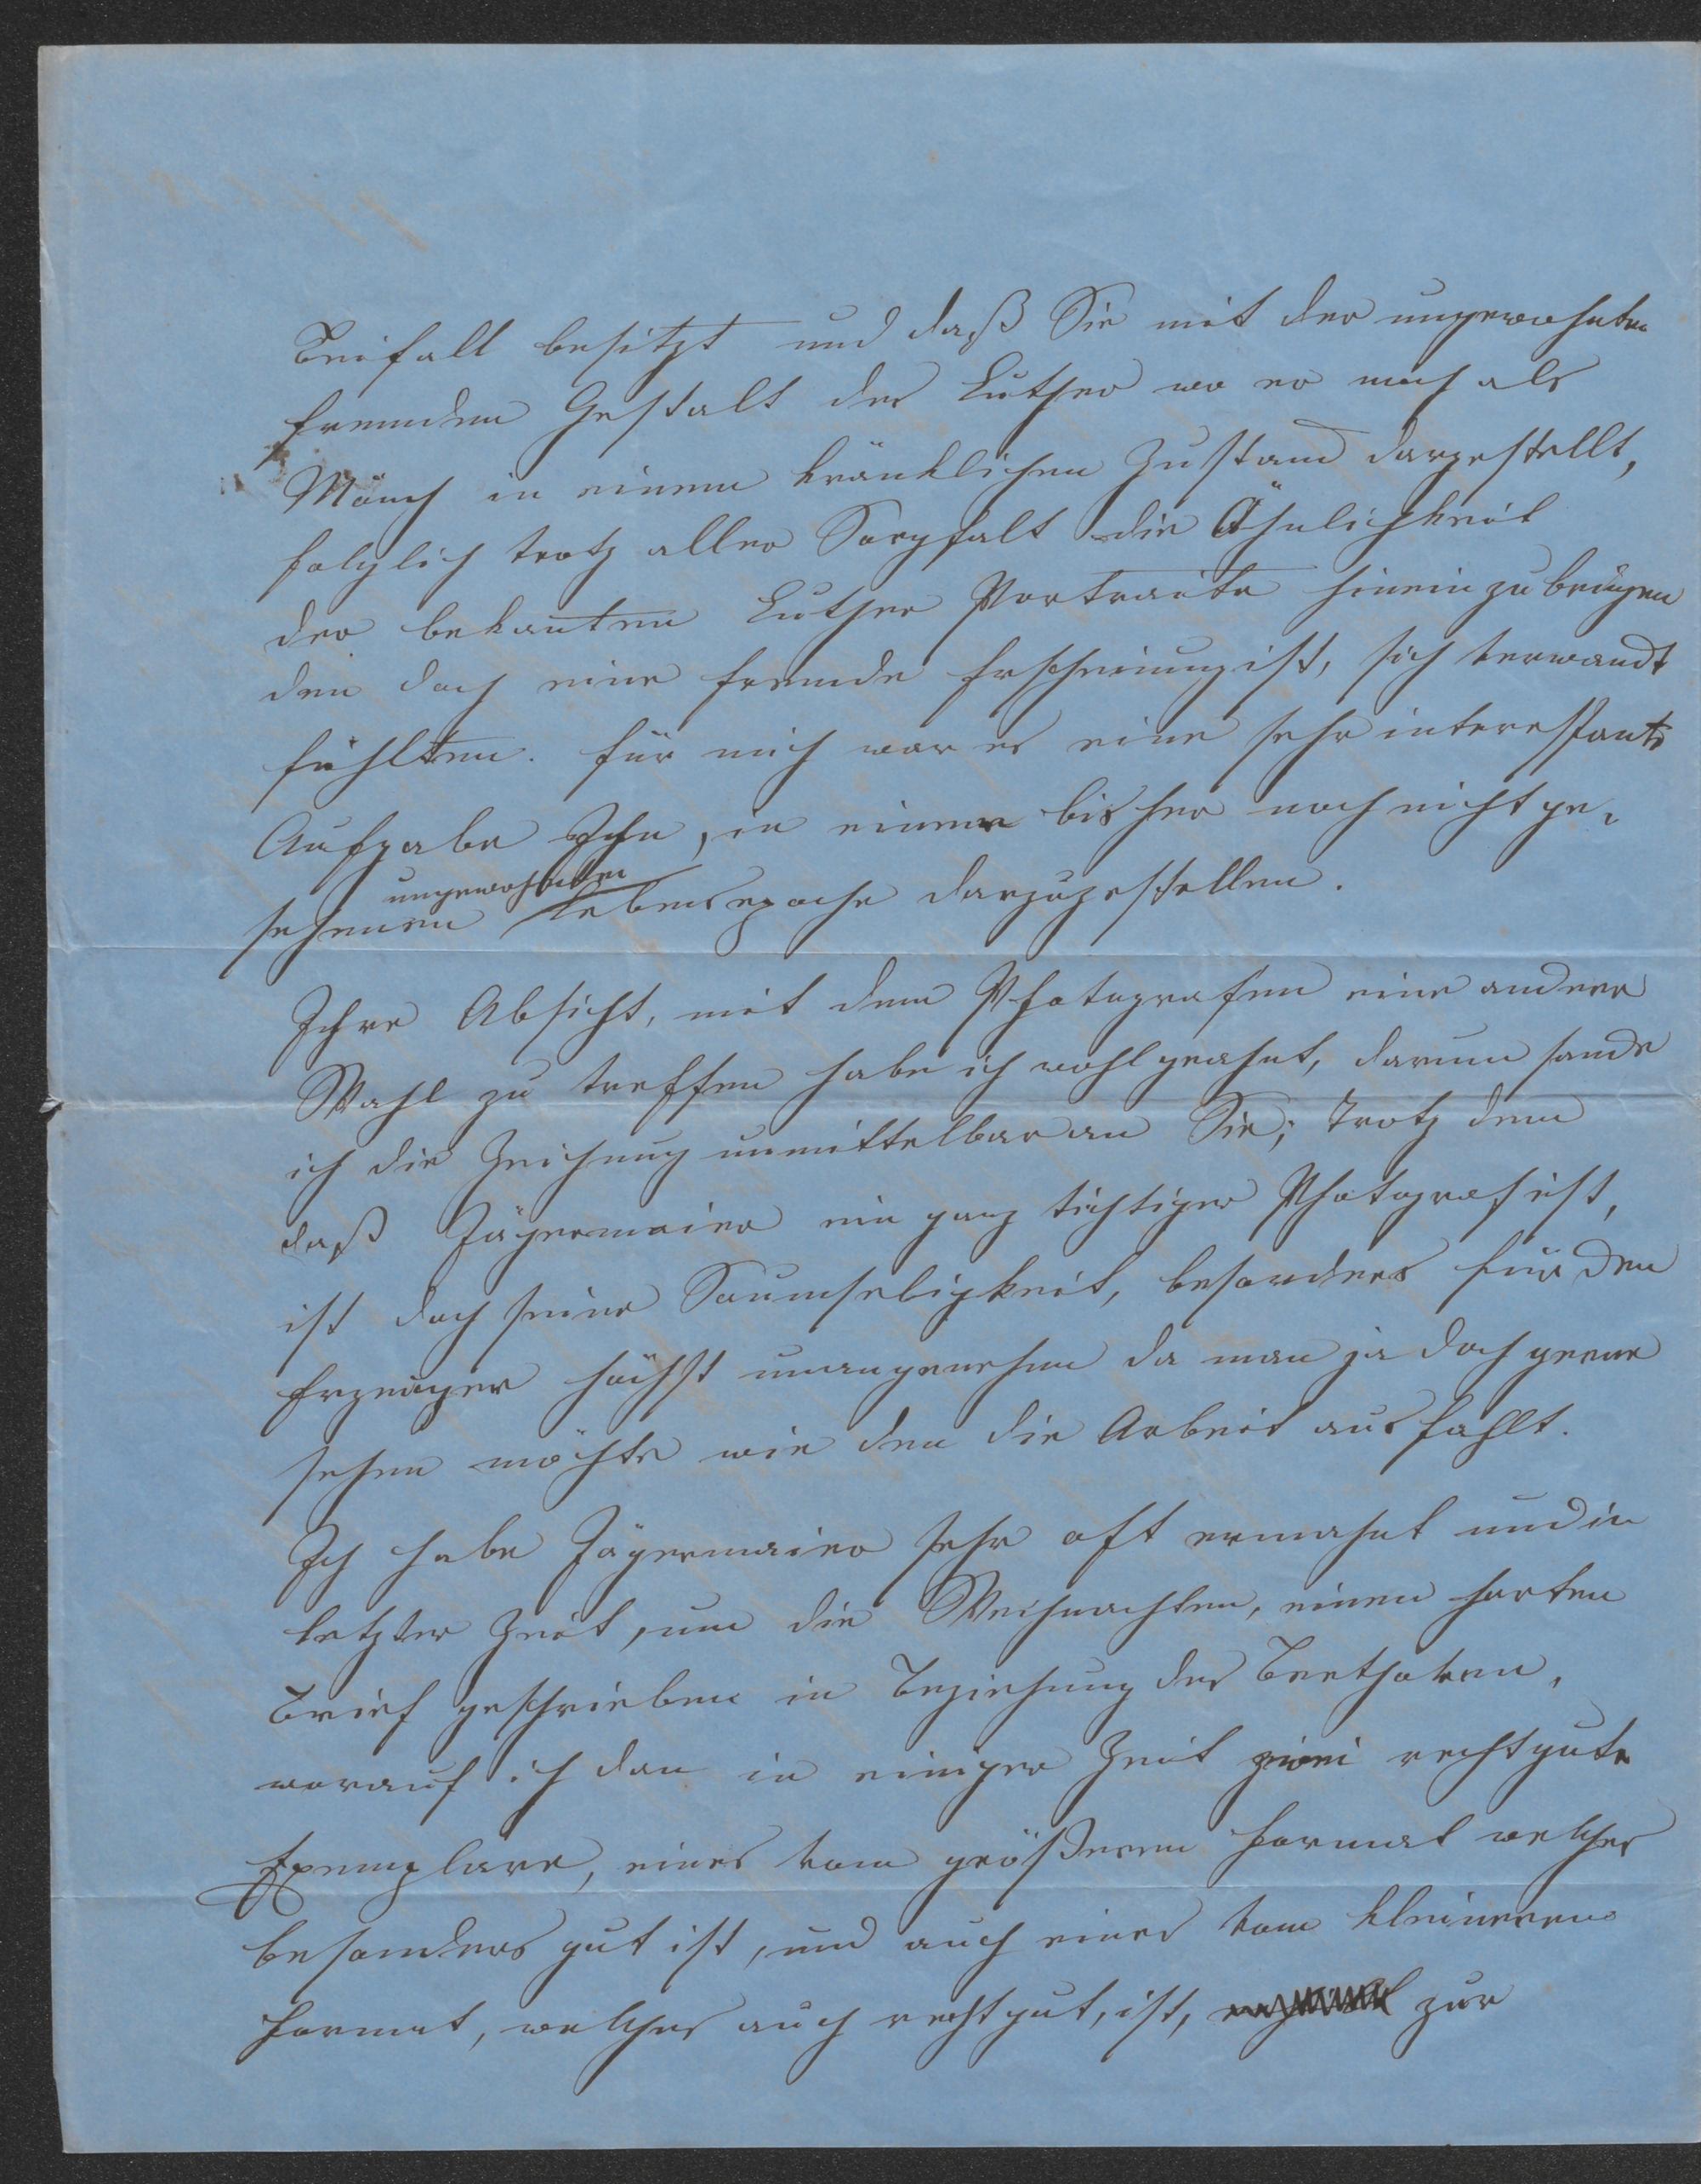 Beifall besitzt und daß Sie mit der ungewohnten
fremden Gestalt des Luther wo er noch als
Mönch in einem kränklichen Zustand dargestellt,
folglich trotz aller Sorgfalt die Ähnlichkeit
der bekanten Luther Portraite hinein zu bringen
den doch eine fremde Erscheinung ist, sich verwandt
fühlten. Für mich war es eine sehr interessante
Aufgabe Ihn, in einer bisher noch nicht ge-
ungewohnten
sehenen Lebensepoche darzuzustellen.
Ihre Absicht, mit dem Photografen eine andere
Wahl zu treffen habe ich wohl geahnt, darum sande
ich die Zeichnung unmittelbar an Sie; trotz dem
daß Jägermaier ein ganz tichtiger Photograf ist,
ist doch seine Saumseligkeit, besonders für den
Erzeuger höchst unangenehm da man ja doch gerne
sehen möchte wie den die Arbeit ausfahlt.
Ich habe Jägermaier sehr oft ermahnt und in
letzter Zeit, um die Weihnachten, einen harten
Brief geschrieben in Beziehung des Beethoven,
worauf ich dan in einiger Zeit zwei recht gute
Exemplare, eines vom größeren Format welches
besonders gut ist, und auch eines vom kleineren
Format, welches auch recht gut, ist, zur